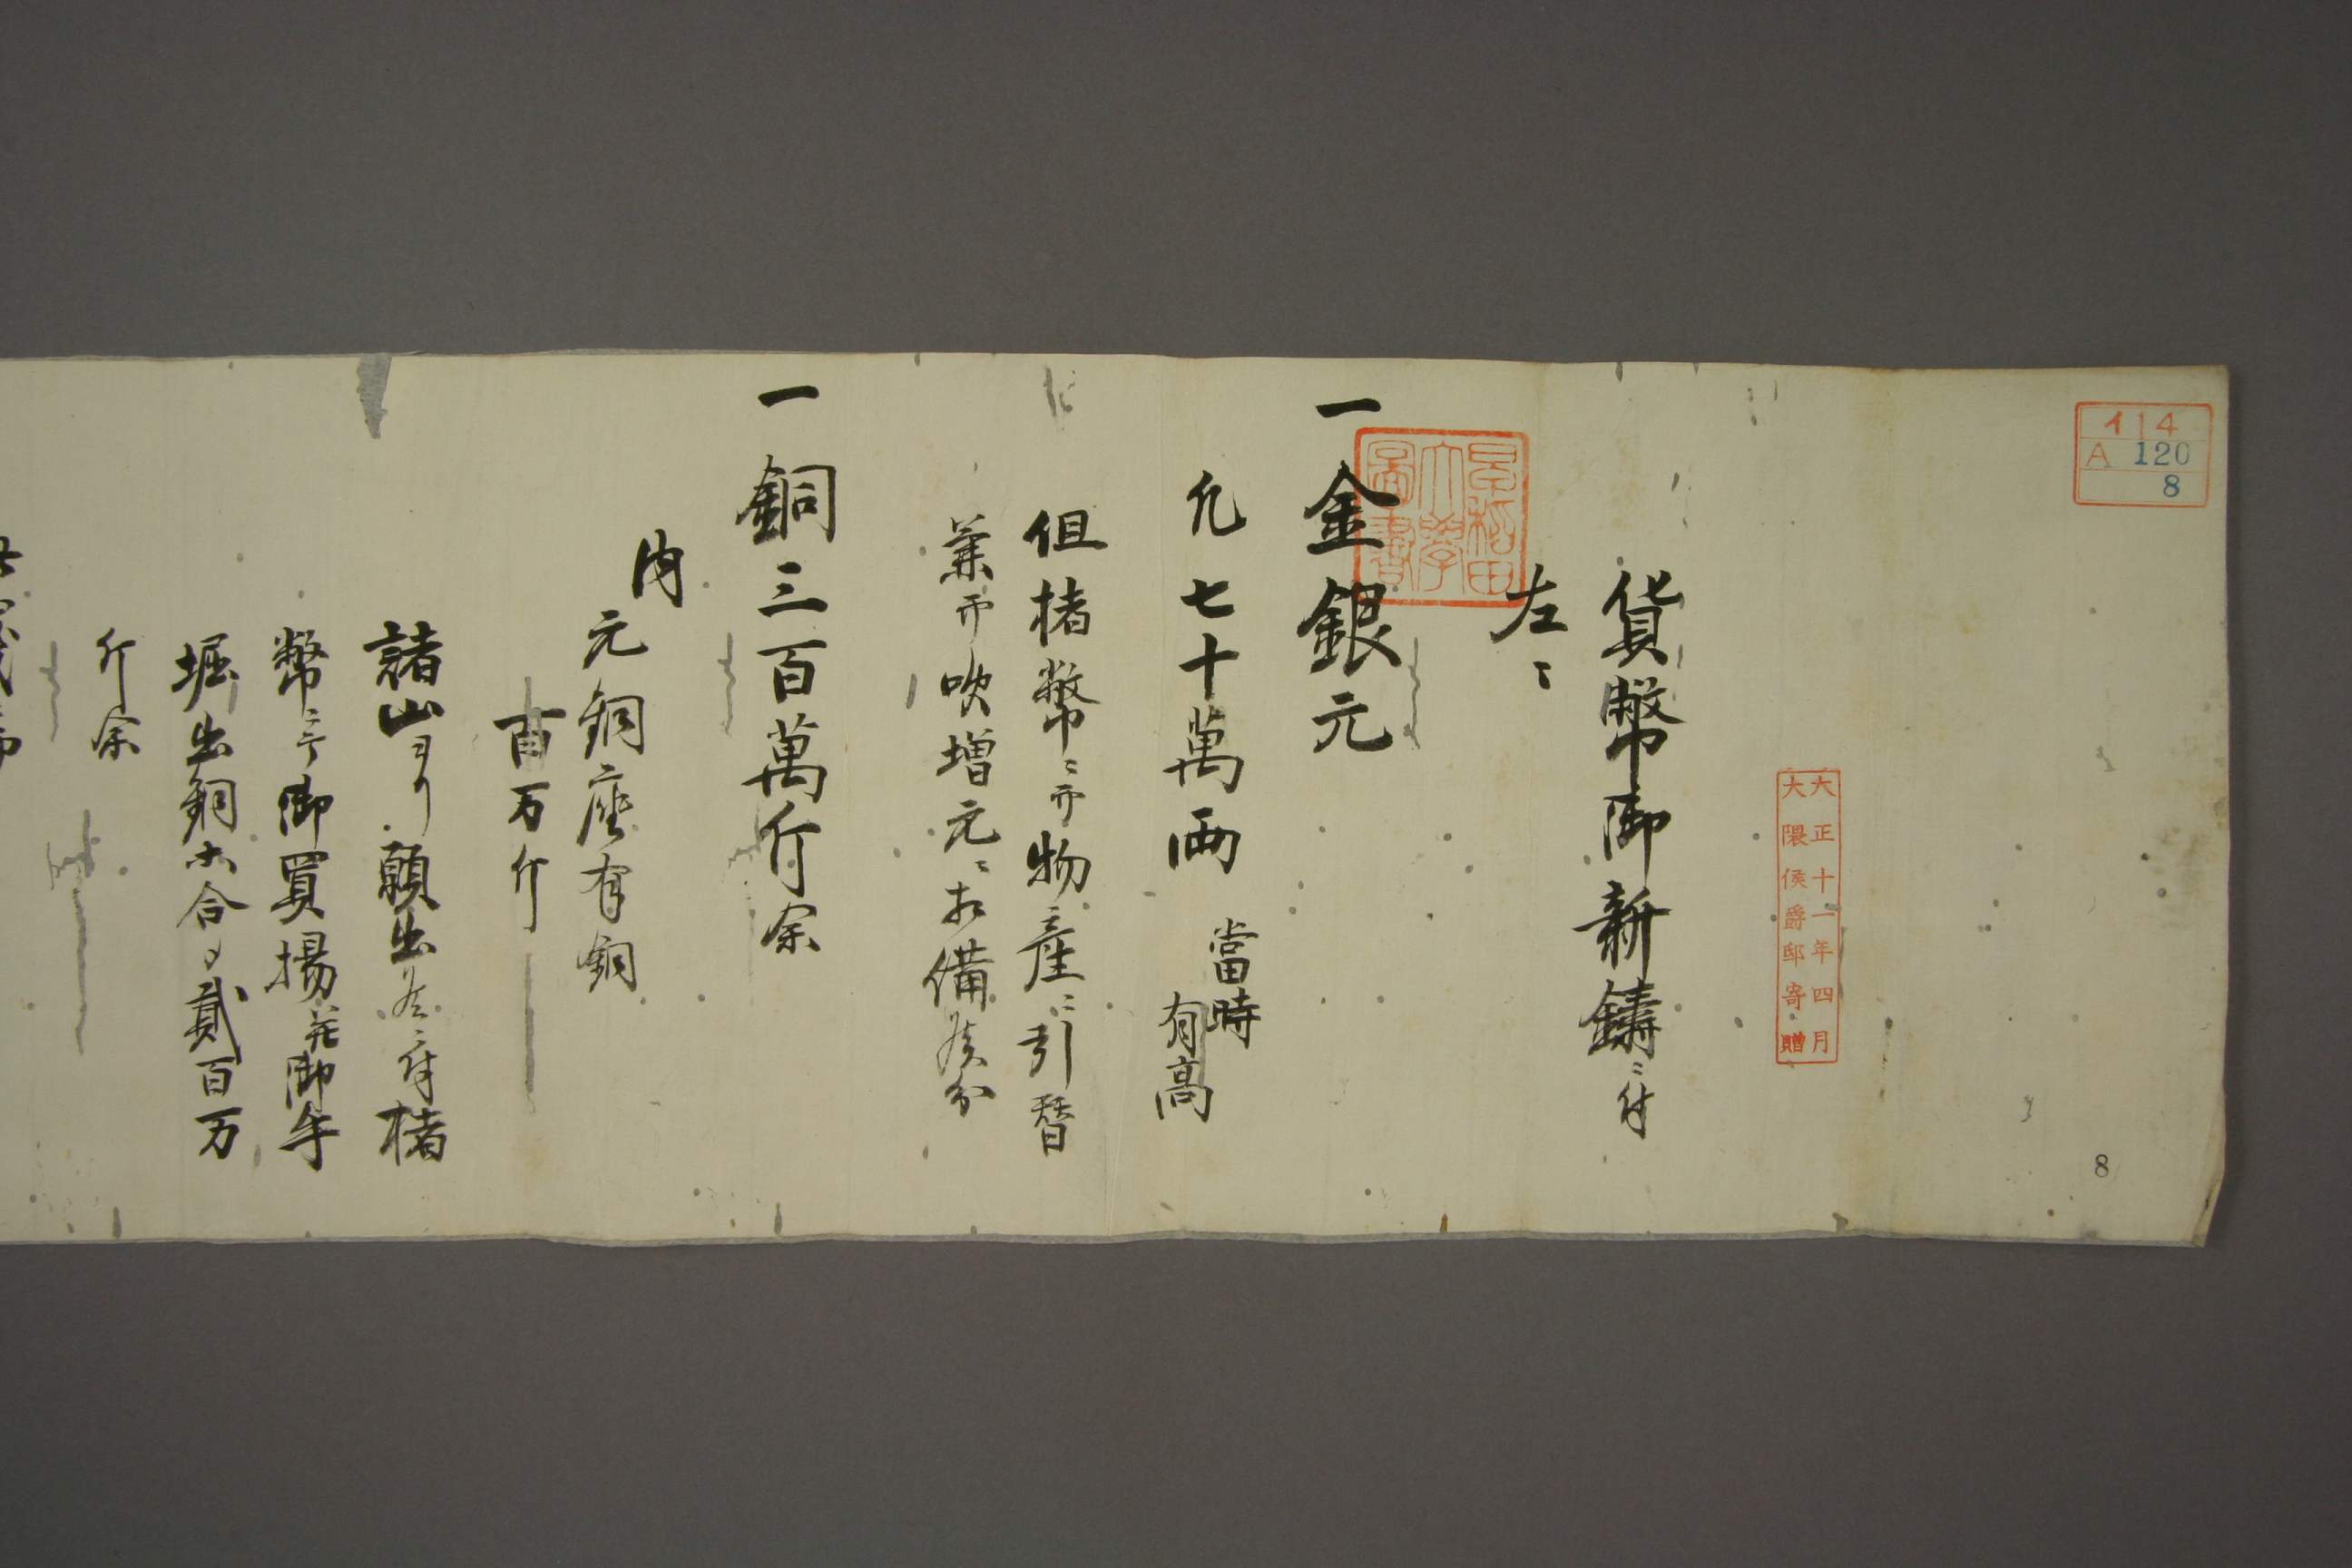 イ14
A 120
8
大正十一年四月
大隈侯爵邸寄贈
早稲田大學圖書
貨幣御新鑄ニ付
左ニ
一金銀元
凡七十萬両
當時
有高
但楮幣ニ而物産ニ引替
業而吹増元ニ相備候分
一銅三百萬斤余
内
元銅座有銅
百万斤
諸山ヨリ願出候ニ付楮
幣ニテ御買揚并御手
堀出銅共合テ貳百万
斤余
8